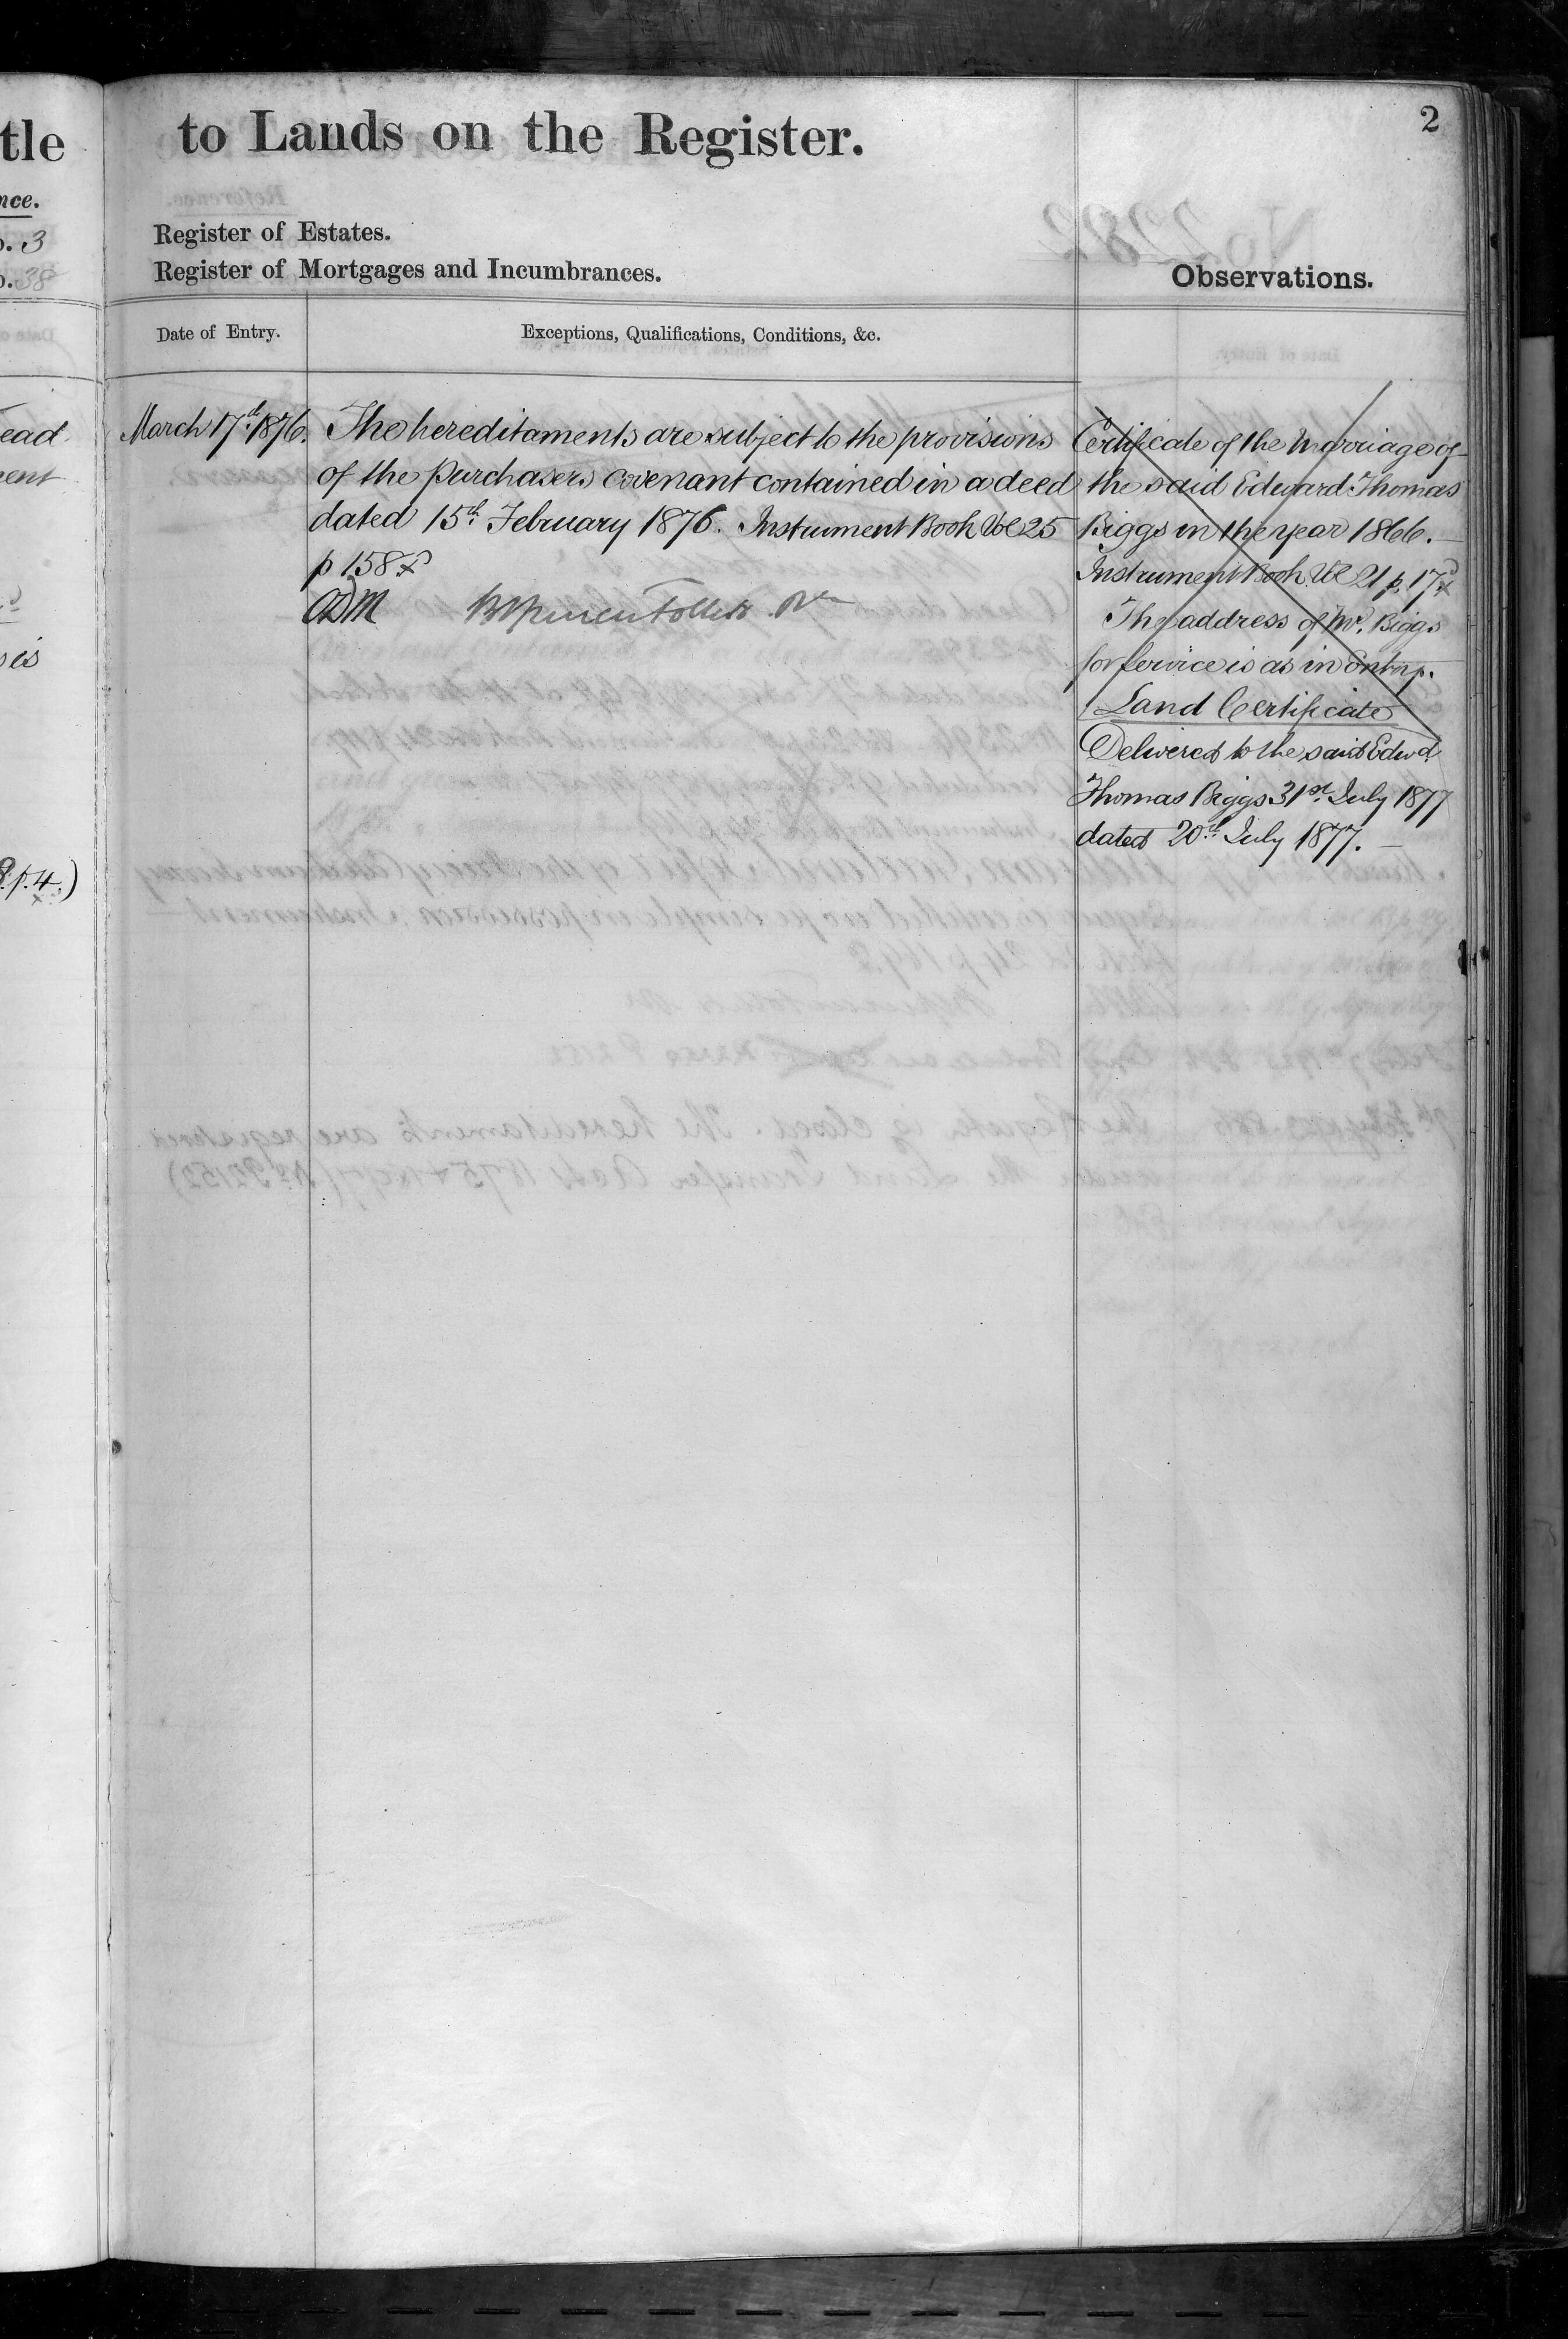 tle
nce.
o. 3
o. 38
ead
ent
sis
p. 4.)
to Lands on the Register.
2
Register of Estates.
Register of Mortgages and Incumbrances.
Observations.
Date of Entry.
Exceptions, Qualifications, Conditions, &c.
March 17th 1876.
The hereditaments are subject to the provisions
of the purchasers covenant contained in a deed
dated 15th February 1876. Instrument Book Vol 25
p 158
ADM
Certificate of the Marriage of
the said Edward Thomas
Biggs in the year 1866.
Instrument Book Vol 21 p. 17
The address of Mr. Biggs
for service is as in Entry.
Land Certificate
Delivered to the said Edwd
Thomas Biggs 31st July 1877
dated 20th July 1877.